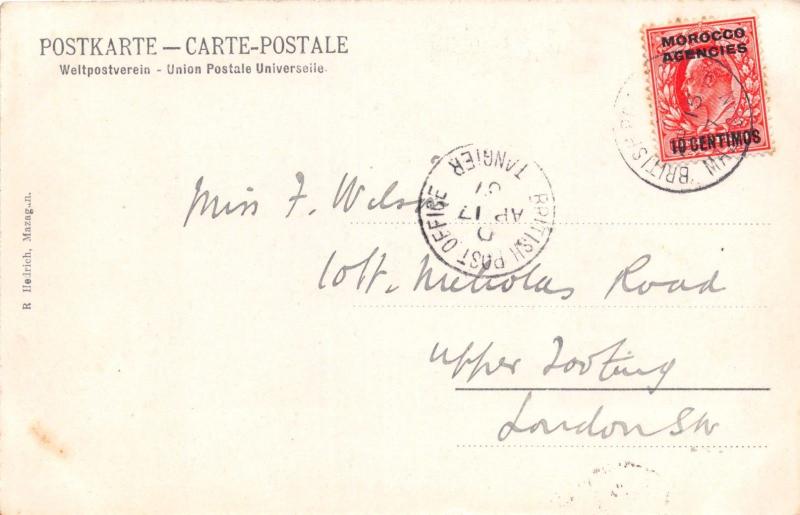 POSTKARTE — CARTE-POSTALE
Weltpostverein - Union Postale Universelle.
MOROCCO
AGENCIES
10 CENTIMOS
BRITISH POST OFFICE TANGIER
D
AP 17
07
BRITISH
Miss F. Wilson
10 St. Nicholas Road
Upper Tooting
London SW
R Hedrich, Mazagan.